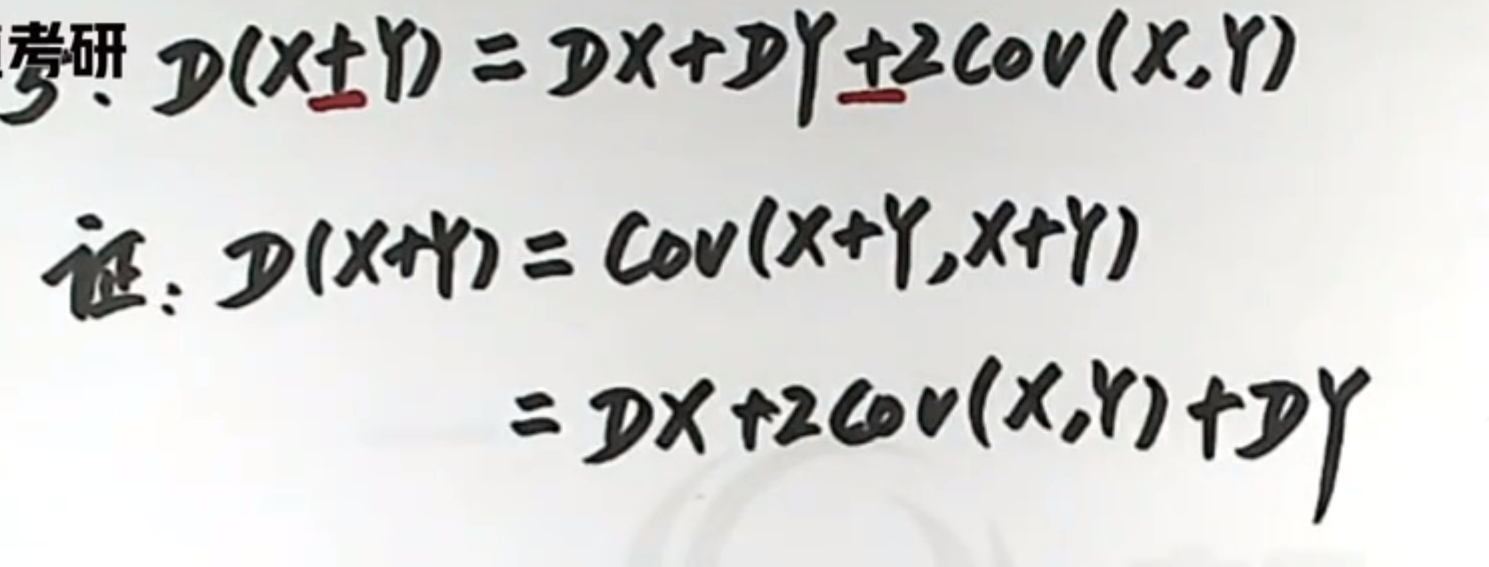 考研
5. D(X±Y) = DX+DY±2Cov(X,Y)
证: D(X+Y) = Cov(X+Y,X+Y)
= DX+2Cov(X,Y)+DY